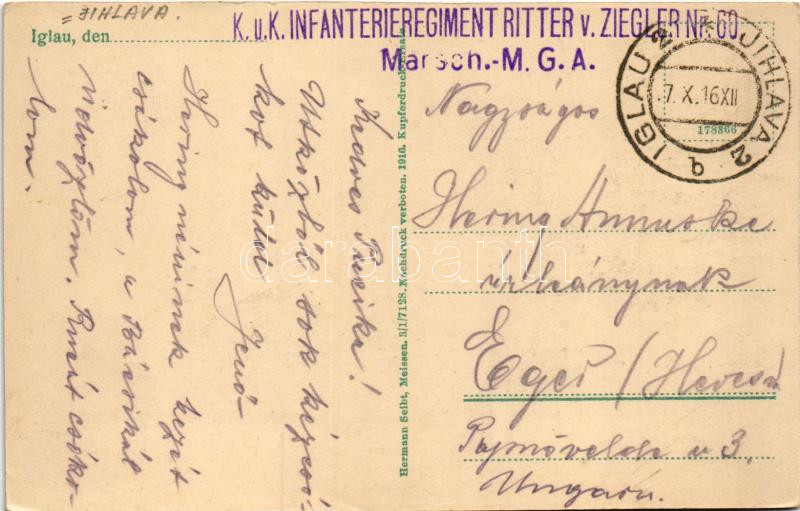 = JIHLAVA.
Iglau, den
K. u. K. INFANTERIEREGIMENT RITTER v. ZIEGLER NR 60.
Marsch.-M. G. A.
IGLAU 2 * JIHLAVA 2 b
7. X. 16 XII
178366
Kedves Puszika!
Utközből sok kézcsó-
kot küld
Jenő-
Hering néninek kezét
csókolom, a Bácsikát
üdvözlöm. Rmuit csóko-
lom.
Hermann Seibt, Meissen. 3/1/7128. Nachdruck verboten. 1916. Kupferdruckformate
Nagyságos
Hering Annuska
urleánynak
Eger (Heves m
u 3.
Ungarn.
darabanth